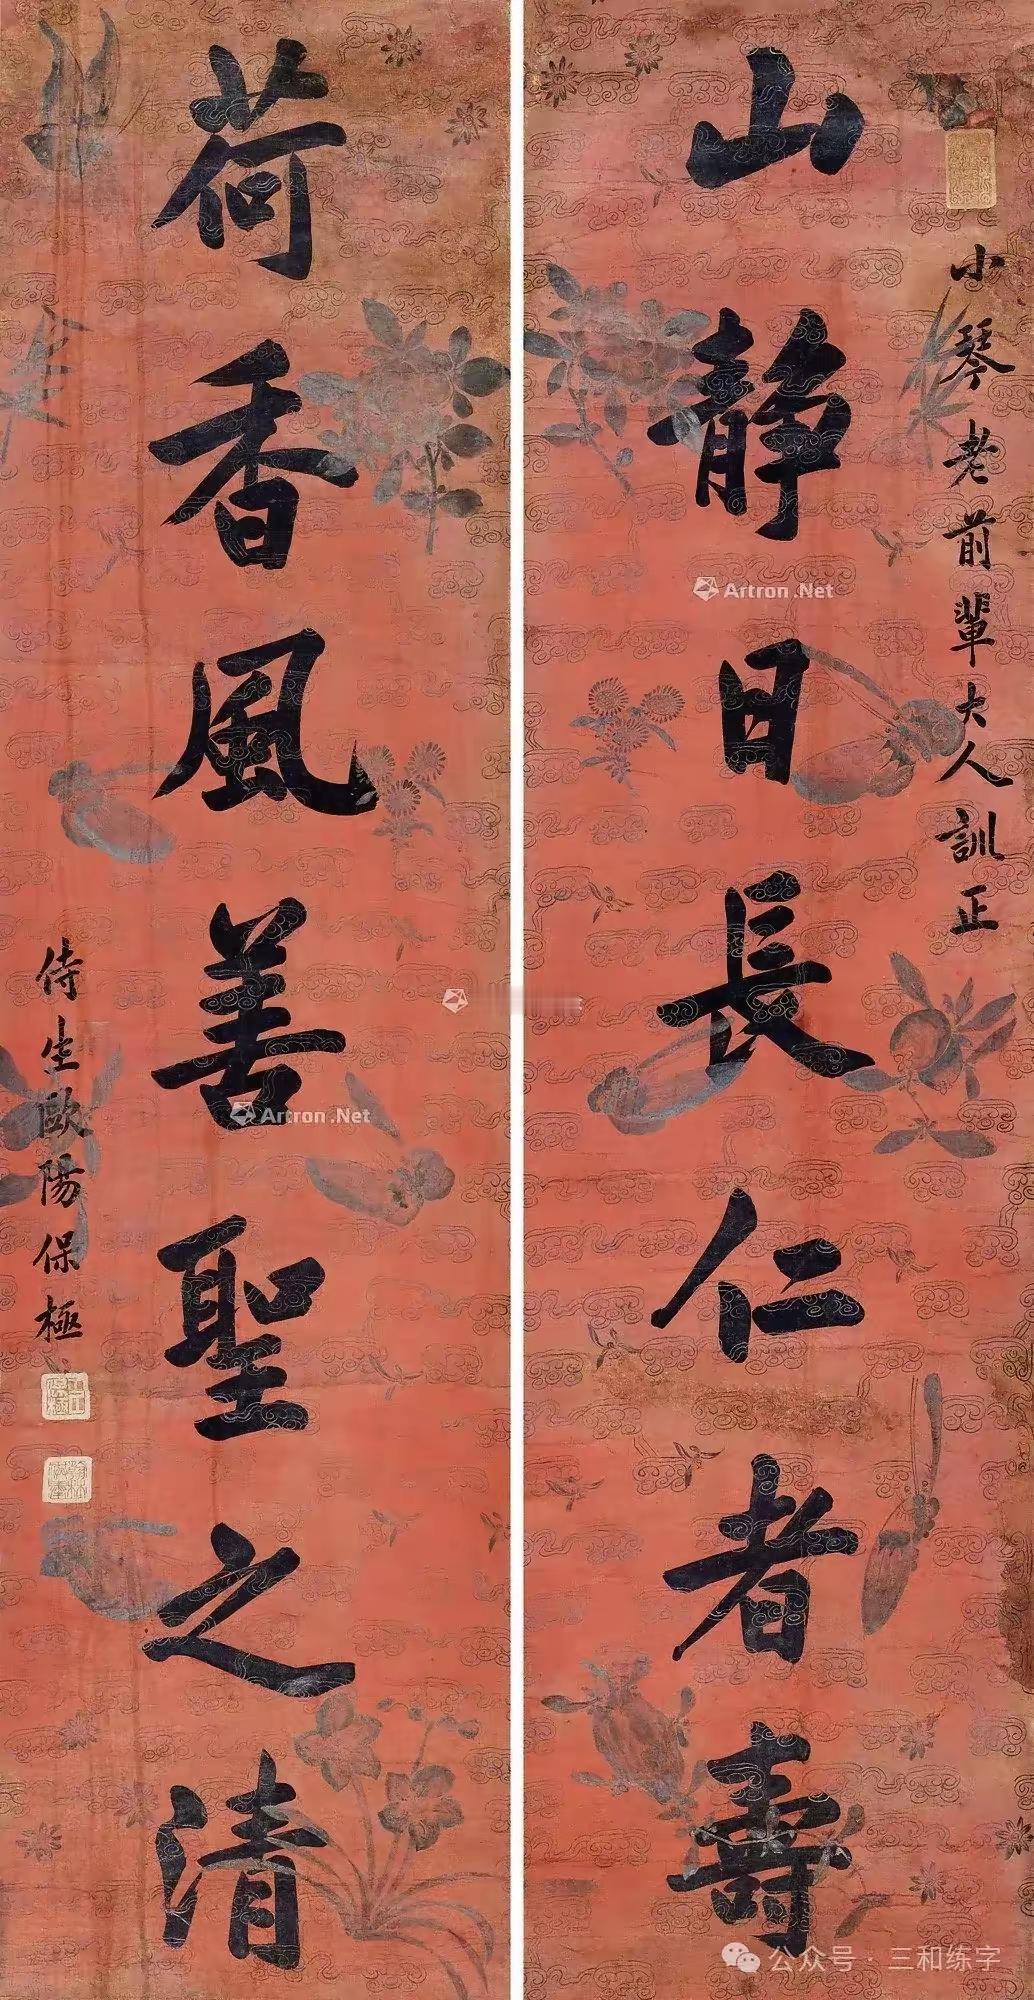 小琴老前輩大人訓正
山静日長仁者壽
荷香風善聖之清
侍生歐陽保極
Artron.Net
Artron.Net
公众号·三和练字